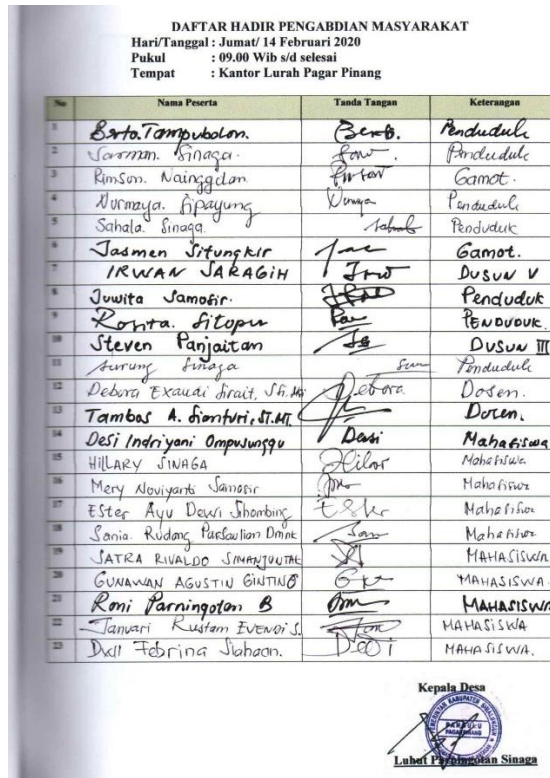 DAFTAR HADIR PENGABDIAN MASYARAKAT
Hari/Tanggal : Jumat/ 14 Februari 2020
Pukul : 09.00 Wib s/d selesai
Tempat : Kantor Lurah Pagar Pinang
No Nama Peserta Tanda Tangan Keterangan
1 Berto. Tampubolon. Penduduk
2 Sarman. Sinaga. Penduduk
3 Rimson. Nainggolan Gamot.
4 Nurmaya. Sipayung Penduduk
5 Sahala. Sinaga. Penduduk
6 Jasmen Situngkir Gamot.
7 IRWAN SARAGIH DUSUN V
8 Juwita Samosir. Penduduk
9 Rosita. Sitopu PENDUDUK.
10 Steven Panjaitan DUSUN III
11 Sinaga Penduduk
12 Debora Exaudi Sirait, Debora Dosen.
13 Tambos A. Sianturi, ST.MT. Dosen.
14 Desi Indriyani Ompusunggu Desi Mahasiswa
15 HILLARY SINAGA Mahasiswa
16 Mery Noviyanti Samosir Mahasiswa
17 Ester Ayu Dewi Sihombing Mahasiswa
18 Sania. Rudang Mahasiswa
19 SATRA RIVALDO SIMANJUNTAK MAHASISWA
20 GUNAWAN AGUSTIN GINTING MAHASISWA.
21 Roni Parningotan B MAHASISWA
22 Januari Rustam EVENDI S. MAHASISWA
23 Dwi Febrina Siahaan. MAHASISWA.
Kepala Desa
Luhut Sinaga